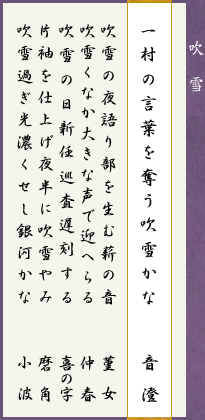 吹雪
一村の言葉を奪う吹雪かな 音澄
吹雪の夜語り部を生む薪の音 菫女
吹雪くなか大きな声で迎へらる 仲春
吹雪の日新任巡査遅刻する 喜の字
片袖を仕上げ夜半に吹雪やみ 磨角
吹雪過ぎ光濃くせし銀河かな 小波